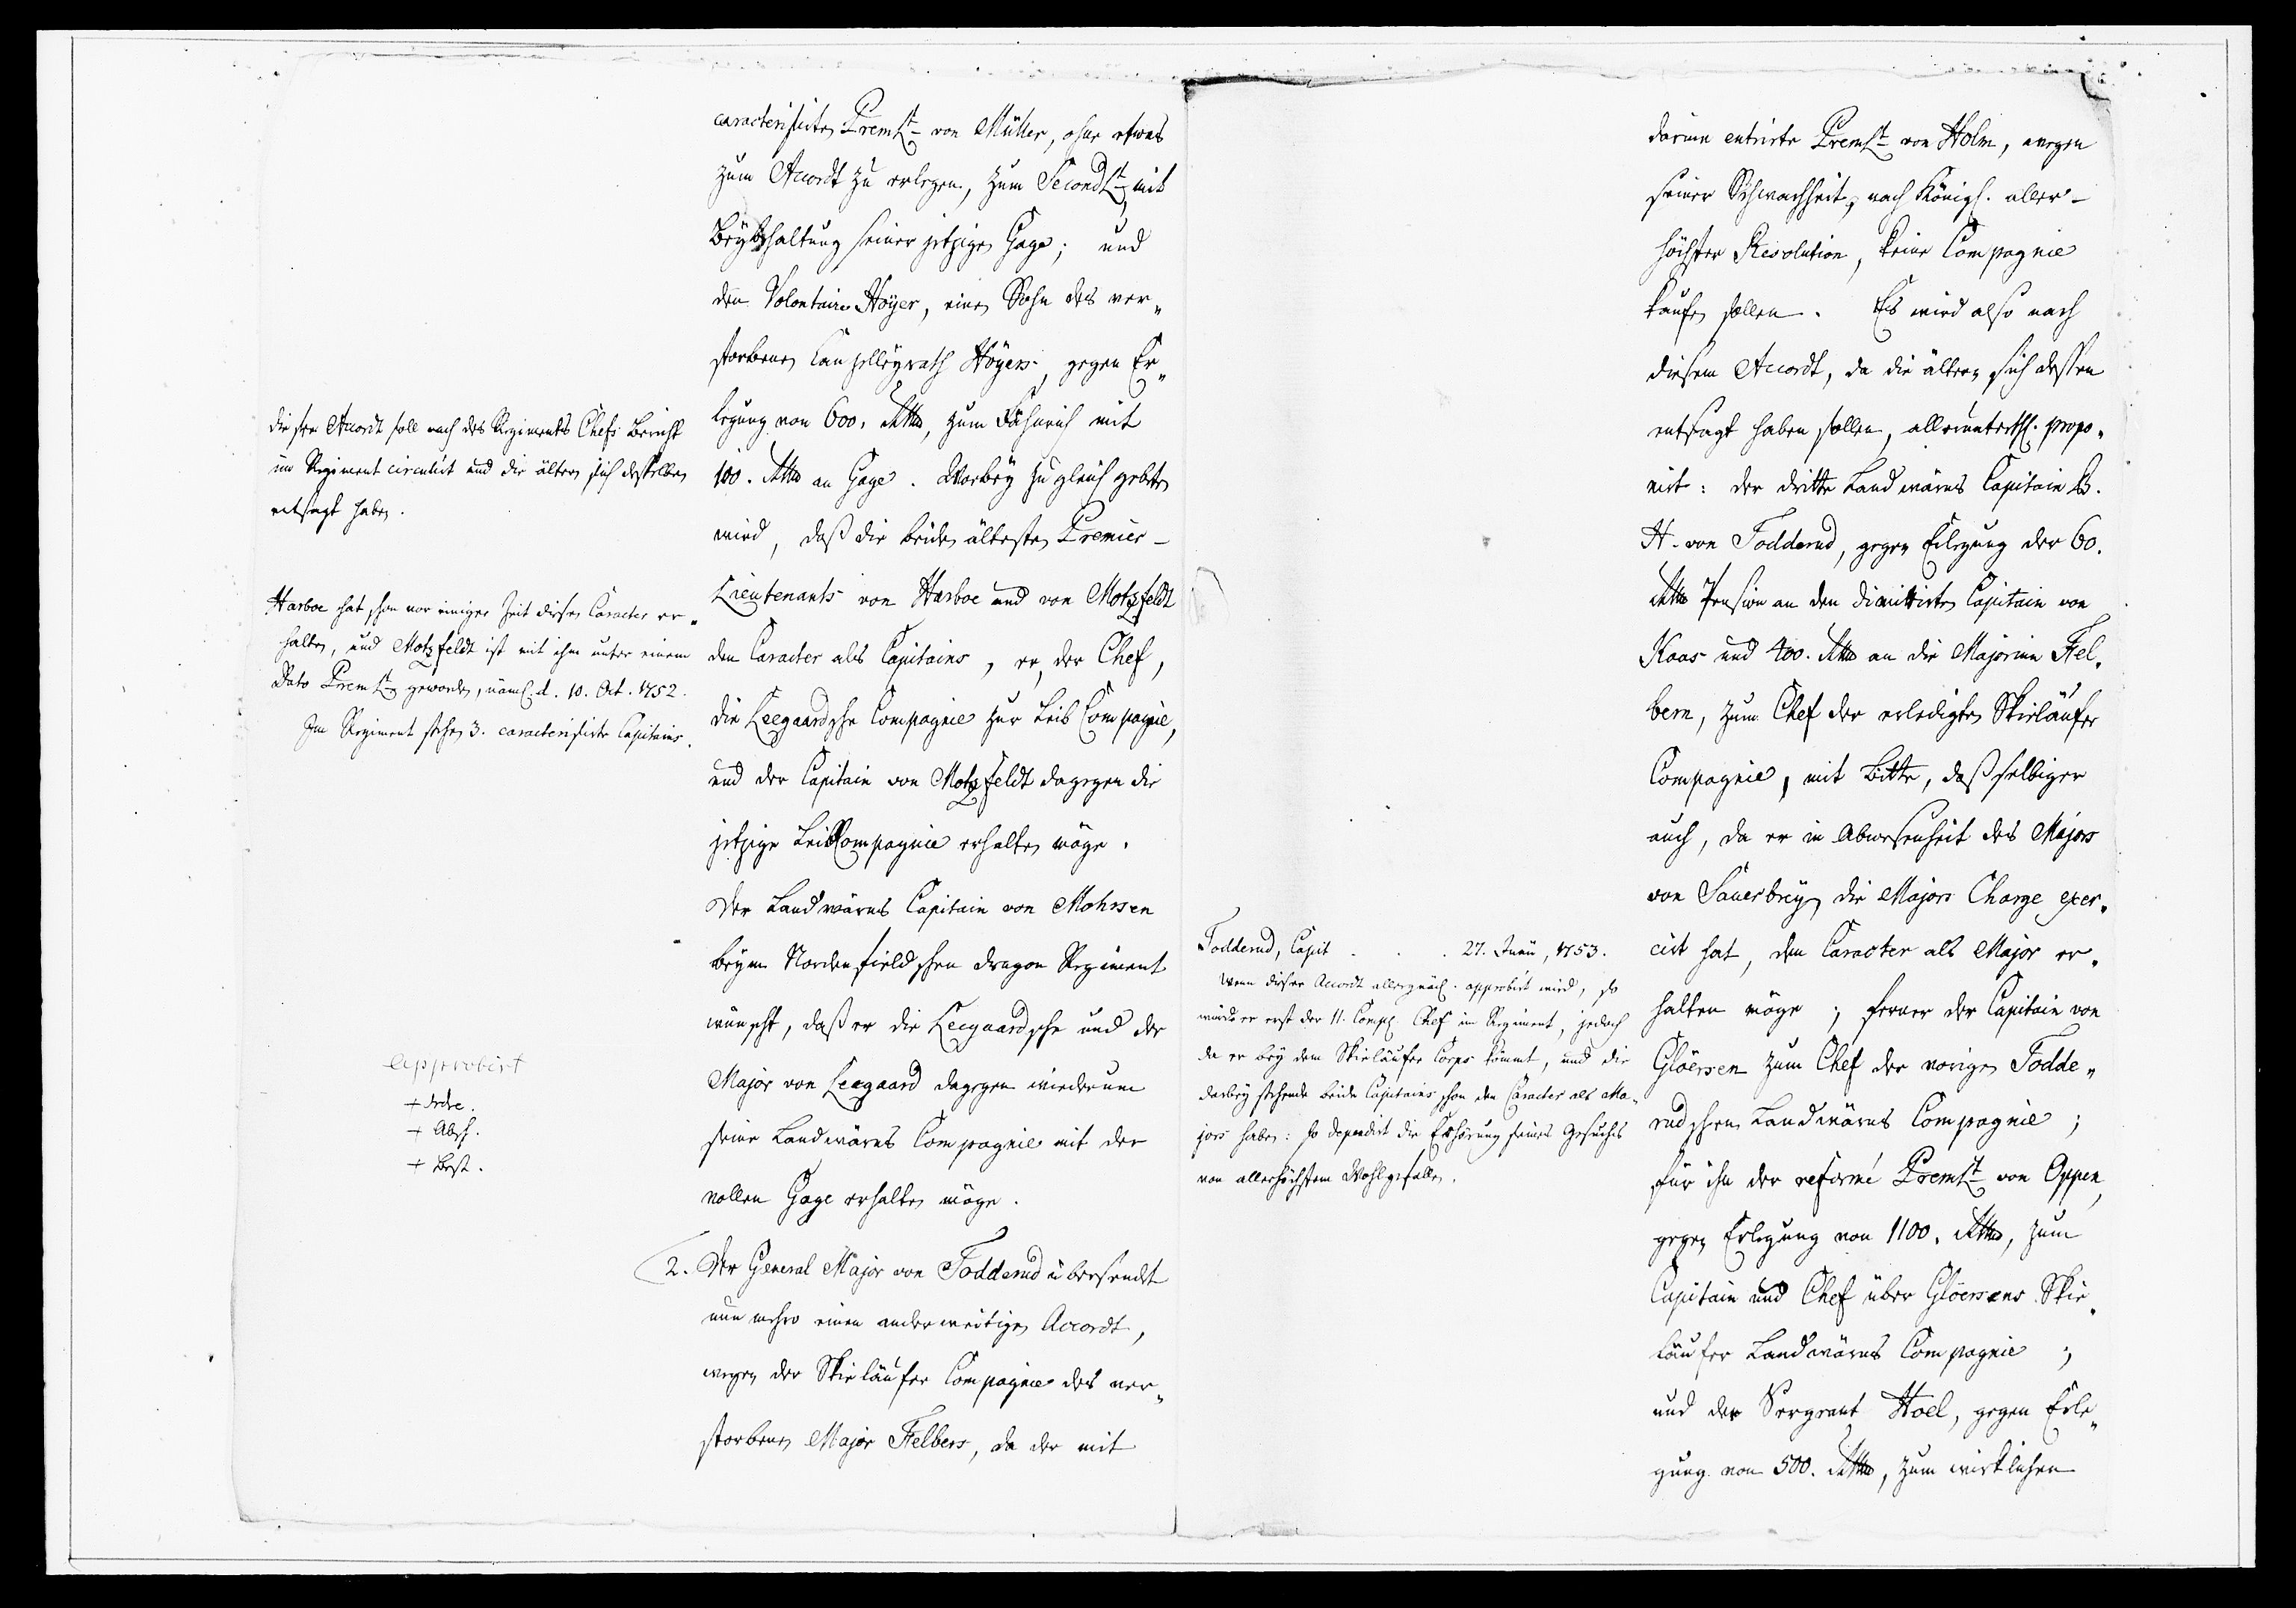 caracterisirten PremLt von Müller, ohne etwas
zum Accordt zu erlegen, zum SecondLt mit
Beybehaltung seiner jetzigen Gage; und
den Volontaire Hoÿer, einen Sohn des ver„
storbenen Cantzelleyrath Hoÿers, gegen Er„
legung von 600. Rthlr, zum Fähnrich mit
100. Rthlr an Gage. Worbey zugleich gebeten
wird, daß die beiden ältesten Premier-
Lieutenants von Harboe und von Motzfeldt
den Caracter als Capitains, er, der Chef,
die Leegaardsche Compagnie zur Leib Compagnie,
und der Capitain von Motzfeldt dagegen die
jetzige LeibCompagnie erhalten möge.
Der Landwärns Capitain von Mohrsen
beym Nordenfieldschen Dragon Regiment
wünscht, daß er die Leegaardsche und der
Major von Leegaard dagegen wiederum
seine Landwärns Compagnie mit der
vollen Gage erhalten möge.
2. Der General Major von Todderud übersendet
nunmehro einen anderweitigen Accordt,
wegen der Skieläufer Compagnie des ver„
storbenen Major Felbers, da der mit
dieser Accordt soll nach des Regiments Chefs Bericht
im Regiment circulirt und die ältern sich desselben
entsagt haben.
Harboe hat schon vor einiger Zeit diesen Caracter er„
halten, und Motzfeldt ist mit ihm unter einem
Dato PremLt geworden, nämlich d. 10. Oct. 1752.
Im Regiment stehen 3. caracterisirte Capitains.
approbirt
+ Ordre.
+ Absch.
+ Best.
darinn entrirte PremLt von Holm, wegen
seiner Schwachheit, nach Königl. aller-
höchster Resolution, keine Compagnie
kaufen sollen. Es wird also nach
diesem Accordt, da die ältern sich dessen
entsagt haben sollen, allerunterth. propo„
nirt: der dritte Landwärns Capitain B.
H. von Todderud, gegen Erlegung der 60.
Rthlr Pension an den dimittirten Capitain von
Kaas und 400. Rthlr an die Majorinn Fel„
bern, zum Chef der erledigten Skieläufer
Compagnie, mit Bitte, daß selbiger
auch, da er in Abwesenheit des Majors
von Sauerbrey die Majors Charge exer„
cirt hat, den Caracter als Major er„
halten möge; ferner der Capitain von
Glöersen zum Chef der vorigen Todde„
rudschen Landwärns Compagnie;
für ihn der reformé PremLt von Oppen,
gegen Erlegung von 1100. Rthlr, zum
Capitain und Chef über Glöersens Skie„
läufer Landwärns Compagnie;
und der Sergeant Hoel, gegen Erle„
gung von 500. Rthlr, zum wirklichen
Todderud, Capit . . . 27. Junii, 1753.
Wenn dieser Accordt allergnäd. approbirt wird, so
würde er erst der 11. Comp. Chef im Regiment, jedoch
da er bey dem Skieläufer Corps kömmt, und die
darbey stehende beide Capitains schon den Caracter als Ma„
jors haben: so dependirt die Erhörung seines Gesuchs
von allerhöchstem Wohlgefallen.